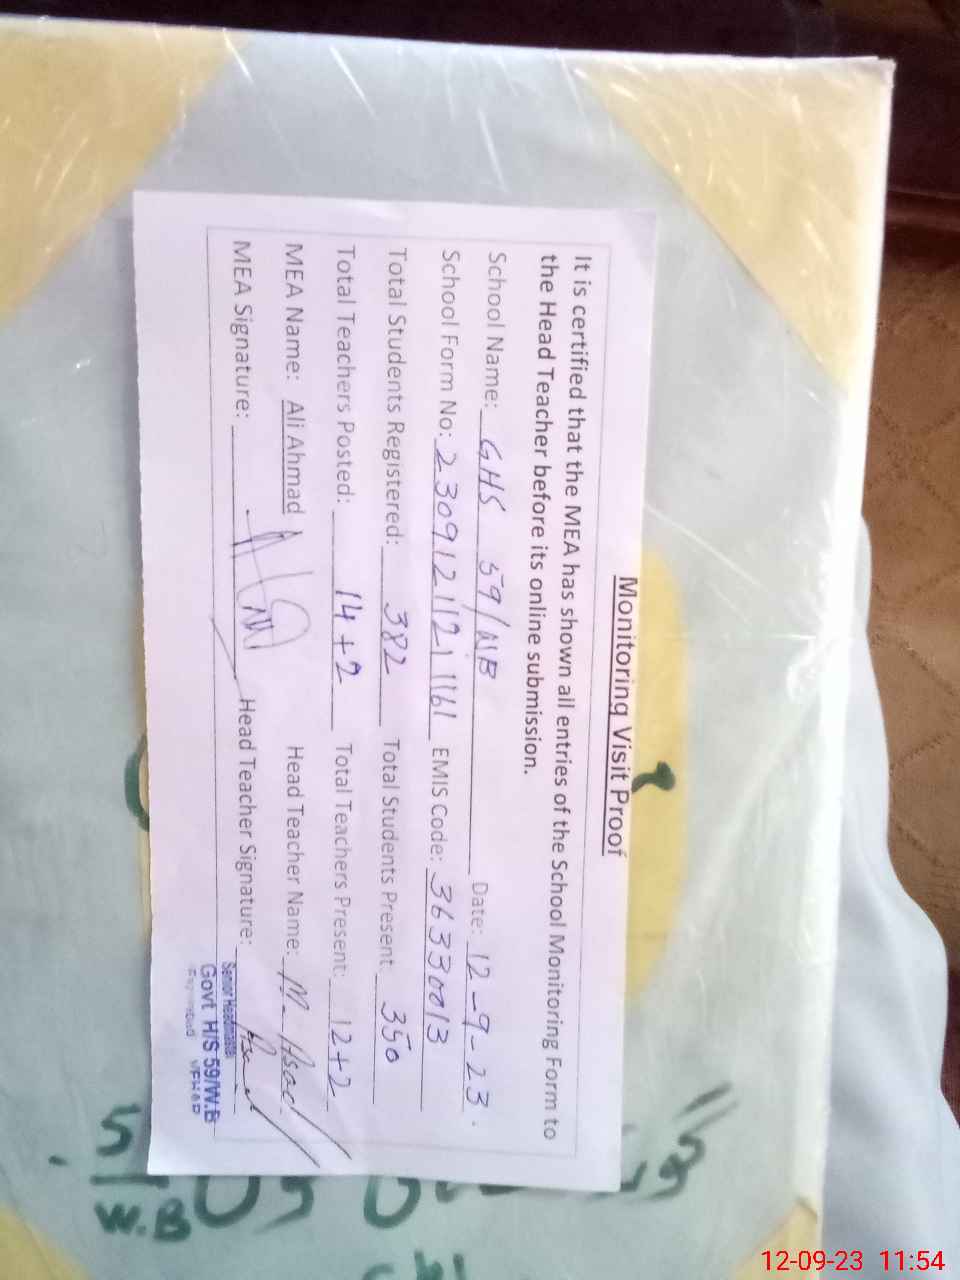 Monitoring Visit Proof
It is certified that the MEA has shown all entries of the School Monitoring Form to
the Head Teacher before its online submission.
School Name: GHS 59/WB Date: 12-9-23.
School Form No: 2309121121161 EMIS Code: 36330013
Total Students Registered: 382 Total Students Present 350
Total Teachers Posted: 14+2 Total Teachers Present: 12+2
MEA Name: Ali Ahmad Head Teacher Name: M. Asad
MEA Signature: Head Teacher Signature:
Senior Headmaster
Govt H/S 59/W.B
VEHARI
W.B
12-09-23 11:54